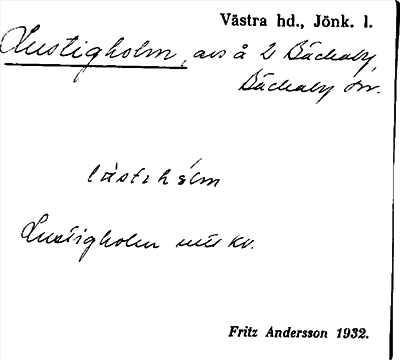 Västra hd., Jönk. l.
Lustigholm, avs å 2 Bäckaby,
Bäckaby sn.
lüstihólm
Lustigholm utt kv.
Fritz Andersson 1932.